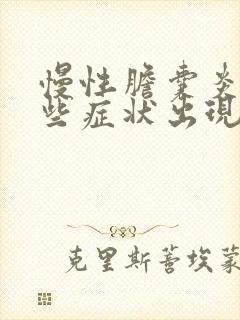 慢性膽囊炎
些症狀出現
克里斯蒂埃蒙